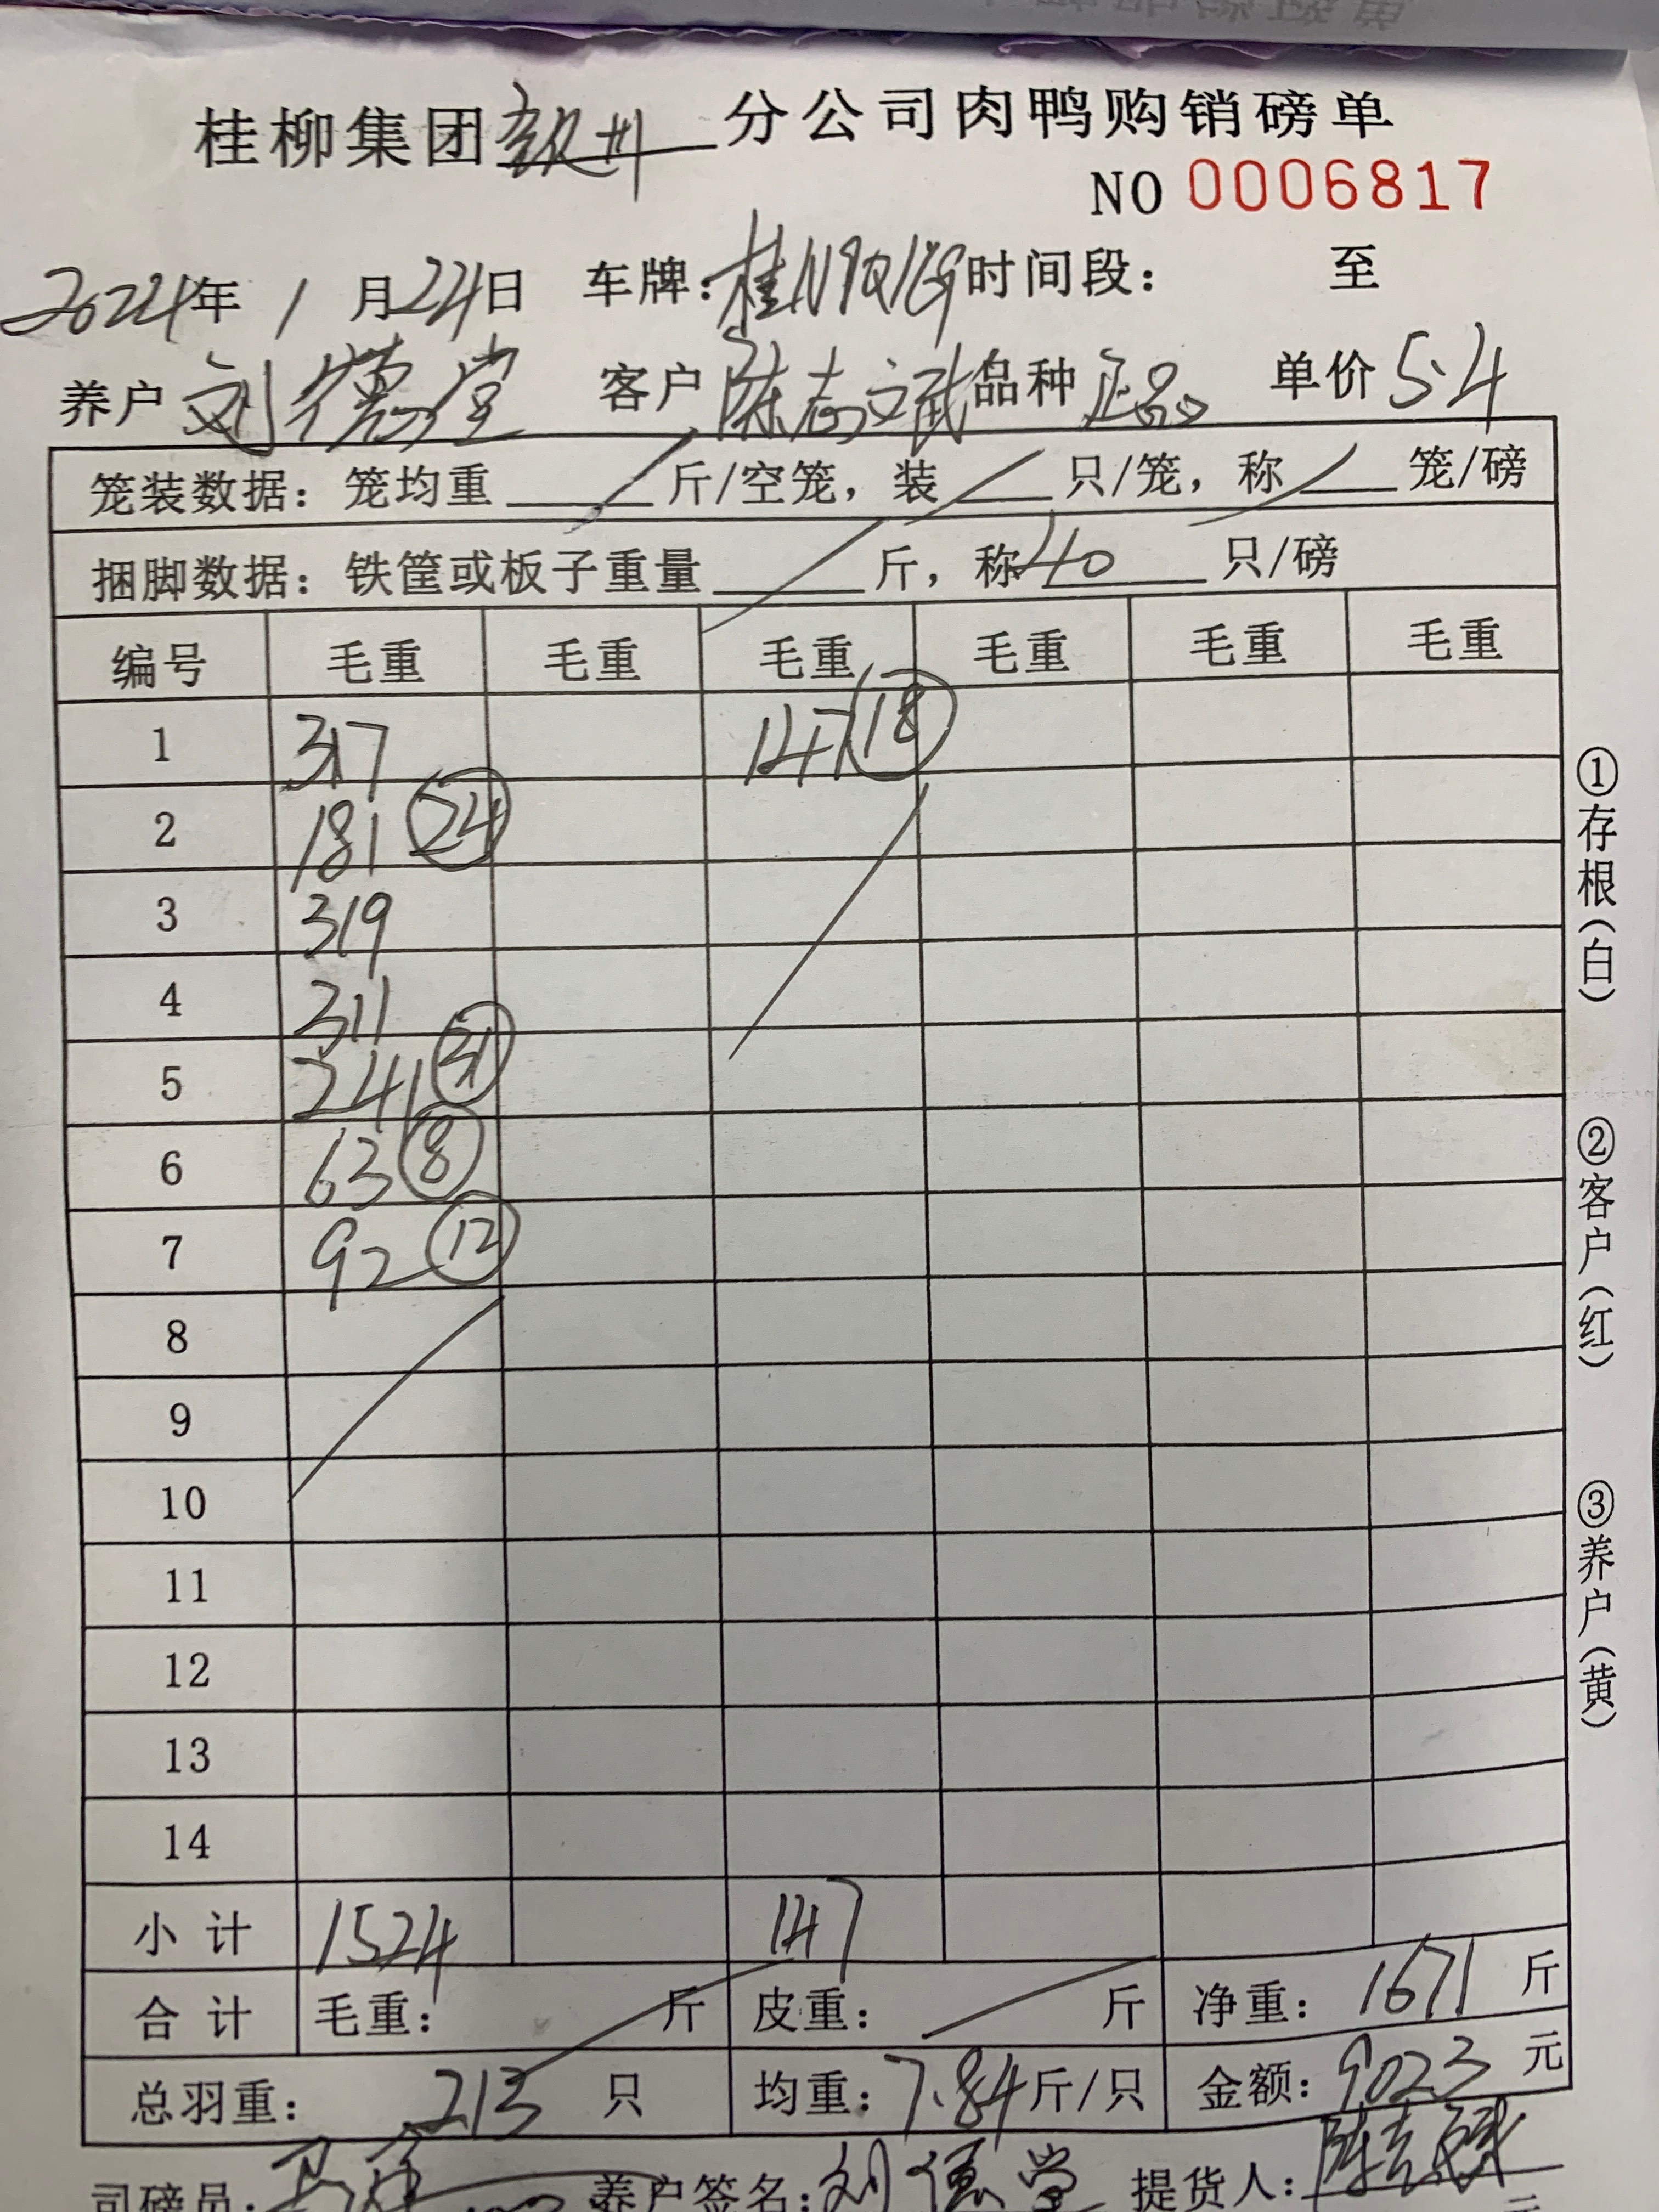 桂柳集团 分公司肉鸭购销磅单
NO 0006817
2024年 1 月24日 车牌: 时间段: 至
养户 刘德堂 客户 陈志斌 品种 正品 单价 5.4
笼装数据: 笼均重 斤/空笼, 装 只/笼, 称 笼/磅
捆脚数据: 铁筐或板子重量 斤, 称 40 只/磅
编号 毛重 毛重 毛重 毛重 毛重 毛重
1 317 147 18
2 181 24
3 319
4 311
5 241 31
6 63 8
7 92 12
8
9
10
11
12
13
14
小计 1524 147
合计 毛重: 斤 皮重: 斤 净重: 1671 斤
总羽重: 213 只 均重: 7.84 斤/只 金额: 9023 元
司磅员: 养户签名: 刘德堂 提货人:
①存根(白)
②客户(红)
③养户(黄)